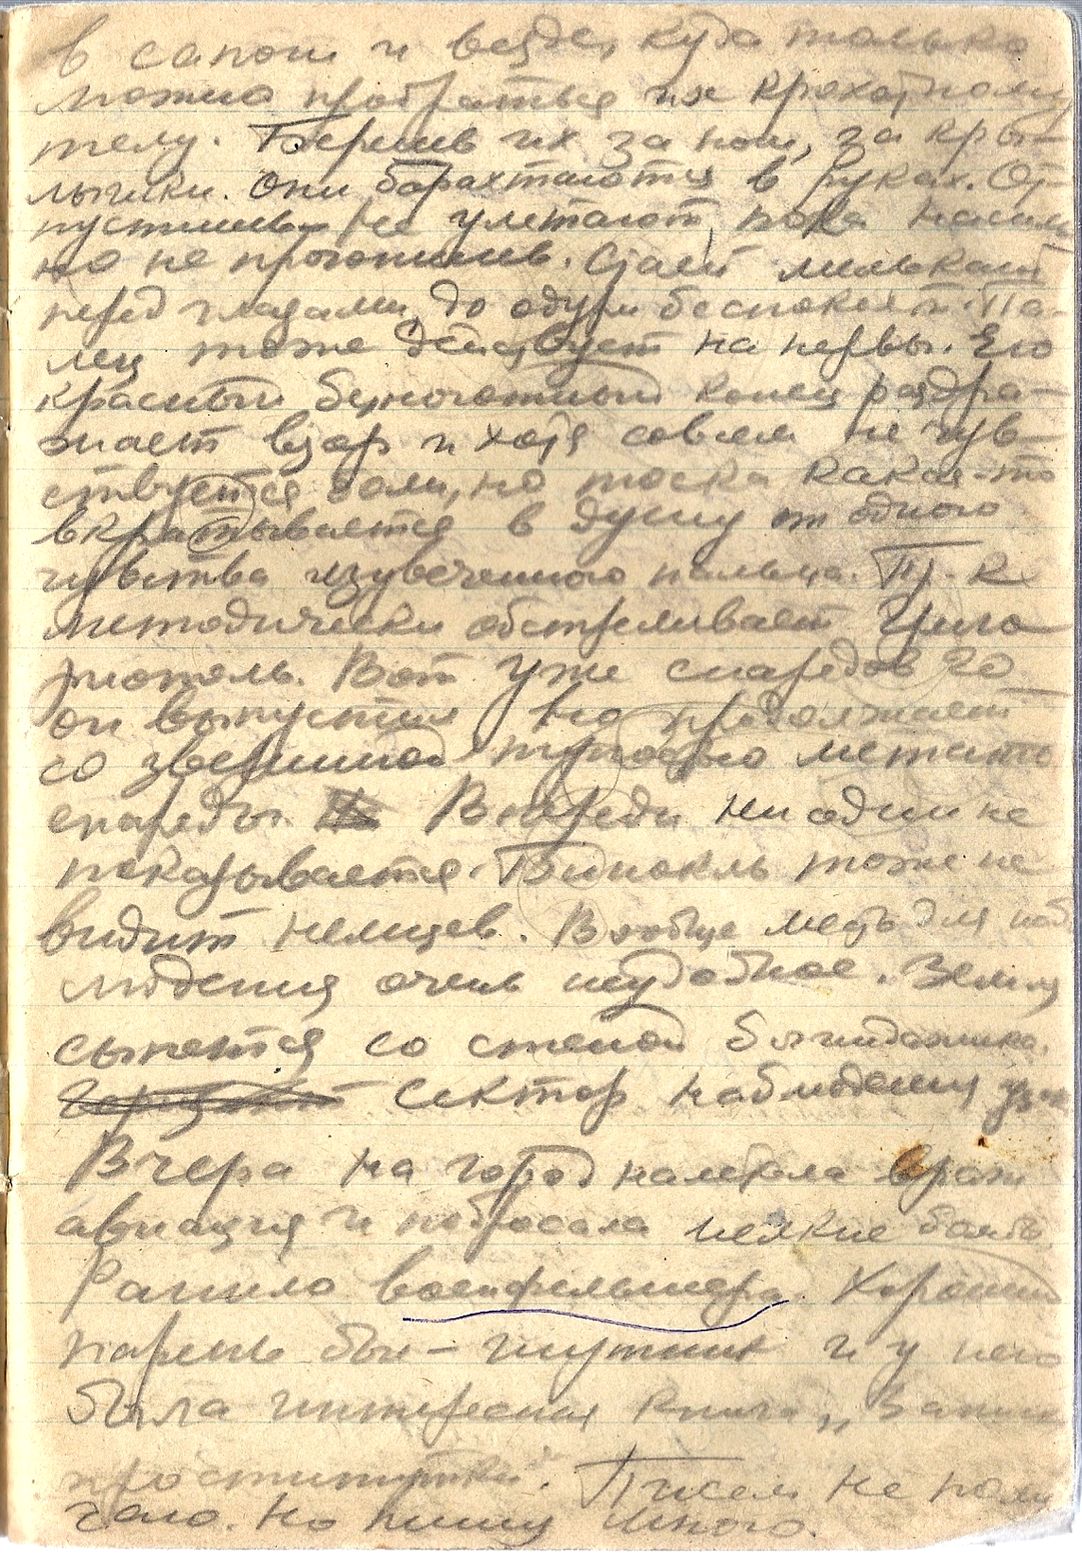 в сапоги и везде, куда только
можно пробраться их крохотному
телу. Берешь их за ноги, за кры-
лышки. Они барахтаются в руках. От-
пустишь – не улетают, пока насиль
но не прогонишь. Стаей мелькают
перед глазами, до одури беспокоят. Па-
лец тоже действует на нервы. Его
красный безноготный конец раздра-
жает взор и хотя совсем не чув-
ствуется боли, но тоска какая-то
вкрадывается в душу от одного
чувства изувеченного пальца. Пр-к
методически обстреливает
Вот уже снарядов 20
он выпустил но продолжает
со звериной тупостью метать
снаряды. Впереди ни один не
показывается. Бинокль тоже не
видит немцев. Вообще место для наб
людения очень неудобное. Земля
сыпется со стенок блиндажика.
Сектор наблюдения узок
Вчера на город налетала враж
авиация и побросала мелкие бомбы.
Ранило военфельшера. Хороший
парень был – шутник и у него
была интересная книга „Записки
проститутки". Писем не полу
чаю. Но пишу много.